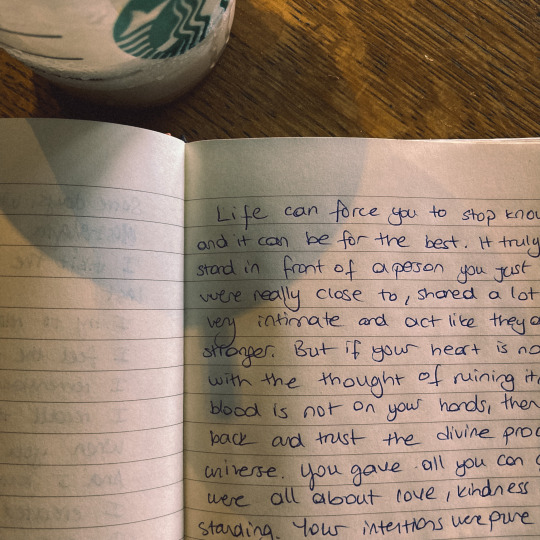 Life can force you to stop know
and it can be for the best. It truly
stand in front of a person you just
were really close to, shared a lot
very intimate and act like they a
stranger. But if your heart is no
with the thought of ruining it,
blood is not on your hands, then
back and trust the divine proc
universe. You gave all you can
were all about love, kindness
standing. Your intentions were pure